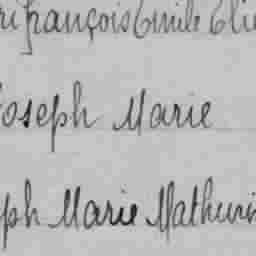 ri françois Emile Elie
Joseph Marie
ph Marie Mathurin